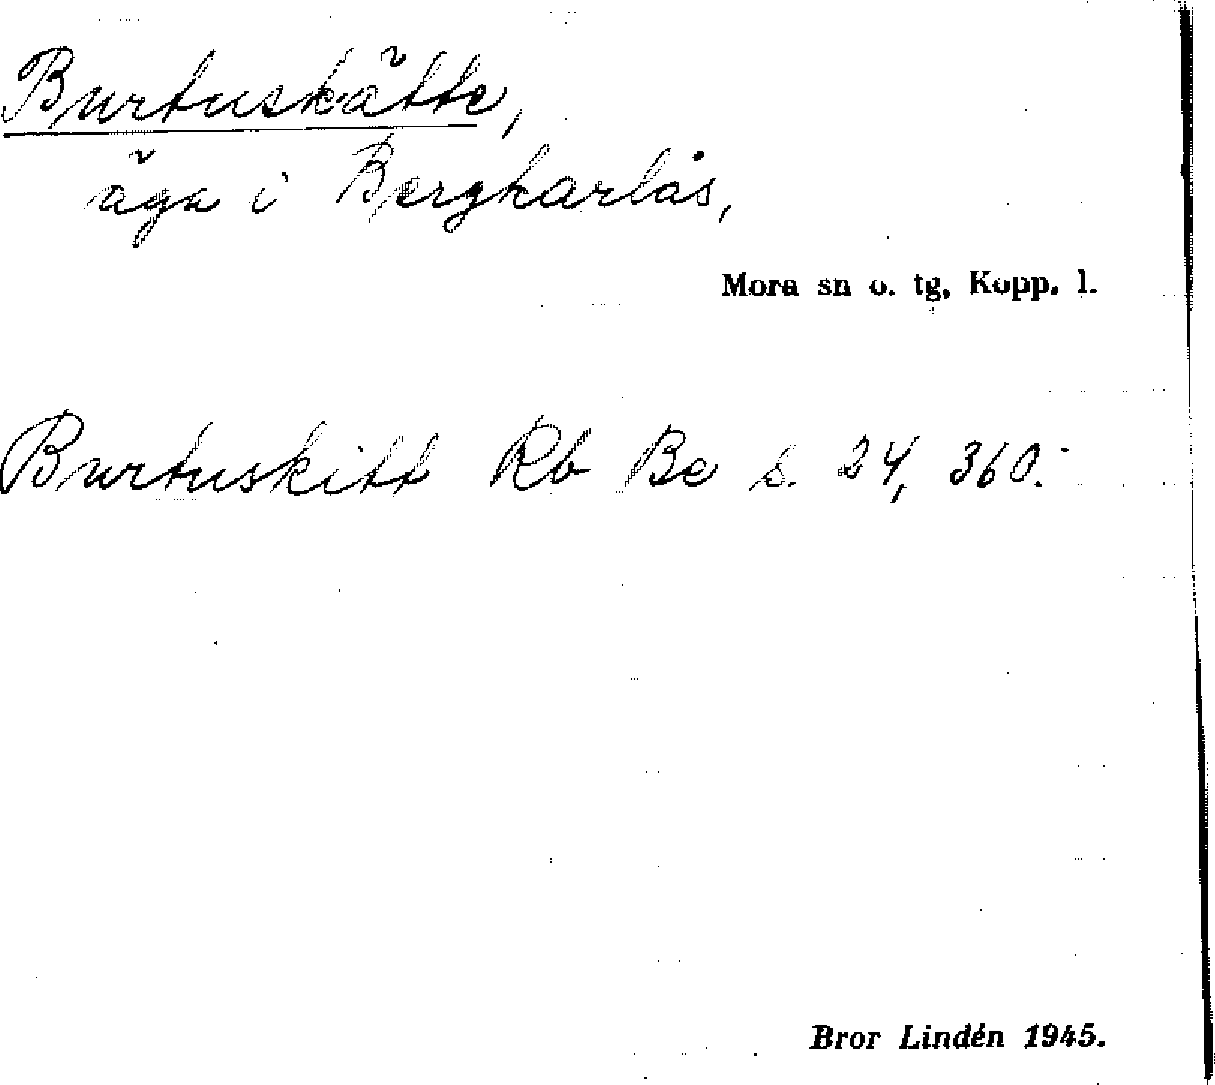 Burtuskätte,
äga i Bergkarlås,
Mora sn o. tg, Kopp. l.
Burtuskitt Rb Be s. 24, 360.-
Bror Lindén 1945.